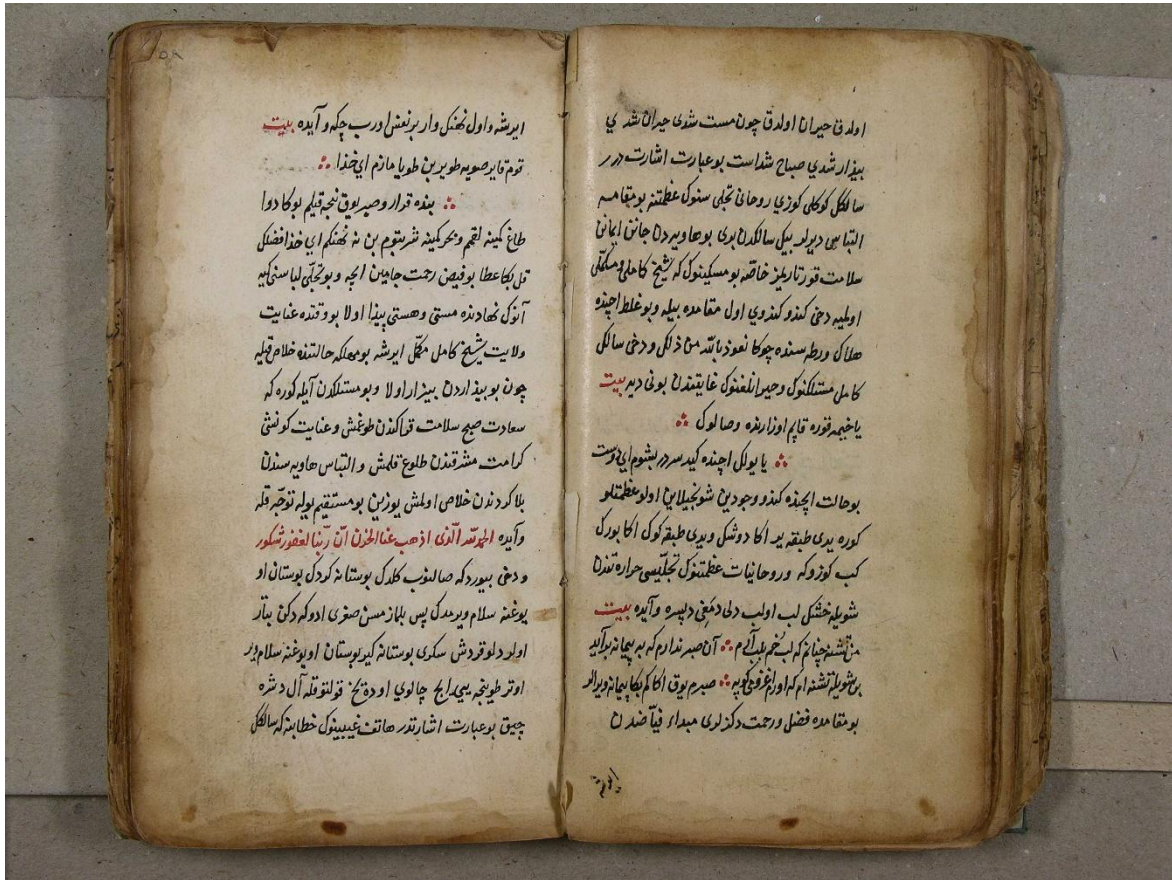 اولدق حیران اولدق چون مست شدی حیران شدی
بیزار شدی صباح شداست بو عبارت اشارت درر
سالکك کوکلی کوزی روحانی تجلی سنوك عظمتنه بو مقامه
التباسی دیرلر بیك سالکدن بری بو هاویه دن جانن ایمانن
سلامت قورتاریمز خاصّه بو مسکینوك که شیخ کاملی و مکمّلی
اولمیه دخی کندو کندوی اول مقامده بیله و بو غلط اچنده
هلاك ورطه سنده چوکا نعوذ بالله من ذلك و دخی سالك
کامل مستلکنوك و حیرانلغنوك غایتندن بونی دیر بیت
یا خیمه قوره قاپم اوزرنده وصالوك
یا یولك اچنده کیدسردر بشوم ای دوست
بو حالت ایچنده کندو وجودین شونجیلاین اولو عظمتلو
کوره یدی طبقه یر اکا دوشك و یدی طبقه کوك اکا بورك
کب کوزوکه و روحانیات عظمتنوك تجلّیسی حرارتندن
شویله خشك لب اولب دلی دمغی دپسره و آیده بیت
من تشنه چنانم که لب خم بلب آرم آن صبر ندارم که به پیمانه برآید
بن شویله تشنه ام که اورم اغزومی کوپه صبرم یوق اکا کم بکا پیمانه ویرالر
بو مقامده فضل و رحمت دکزلری مبداء فیّاضدن
ایرشه
ایرشه و اول نهنك وار بر نعش اورب چکه و آیده بیت
قوم قایر صویه طویر بن طویامازم ای خذا
بنده قرار و صبر یوق نیجه قیلم بوکا دوا
طاغ کمینه لقمم و بحر کمینه شربتوم بن نه نهنکم ای خذا فضلك
قل بکا عطا بو فیض رحمت جامین ایچه و بو تجلّی لباسنی کیه
آنوك نهادنده مستی و هستی پیذا اولا بو وقتده عنایت
ولایت شیخ کامل مکمّل ایرشه بو مهلکه حالتنده خلاص قیله
چون بو بیذاردن بیزار اولا و بو مستلکدن آیله کوره که
سعادت صبح سلامت قواکندن طوغمش و عنایت کونشی
کرامت مشرقندن طلوع قلمش و التباس هاویه سندن
بلا کردندن خلاص اولمش یوزین بو مستقیم یوله توجّه قله
و آیده الحمد لله الّذی اذهب عنا الحزن انّ ربّنا لغفور شکور
و دخی بیورد که صالنوب کلدك بوستانه کردك بوستان او
یوغنه سلام ویرمدك پس بلمازمسن صغری ادوکه دکن یتار
اولر دلو قردش سکری بوستانه کیر بوستان اویوغنه سلام ویر
اوتر طوینجه یی ایچ چالوی اوده یخ قولتوقله آل دشره
چیق بو عبارت اشارتدر هاتف غیبینوك خطابنه که سالکك